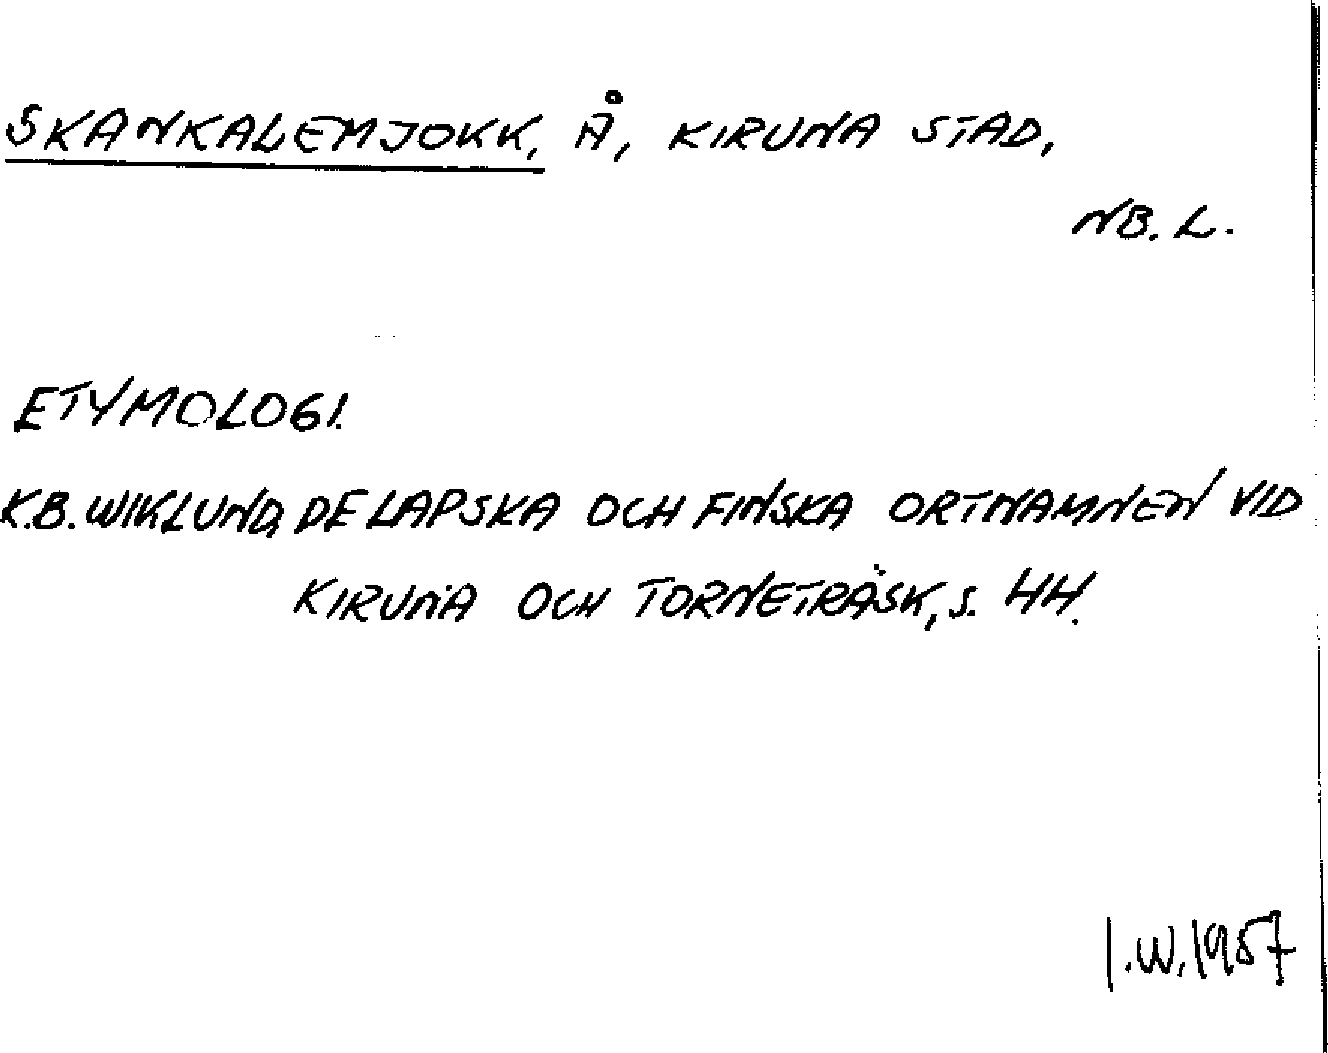 SKANKALEMJOKK, Å, KIRUNA STAD,
NB. L.
ETYMOLOGI.
K.B. WIKLUND, DE LAPSKA OCH FINSKA ORTNAMNEN VID
KIRUNA OCH TORNETRÄSK, s. 44.
I.W. 1957